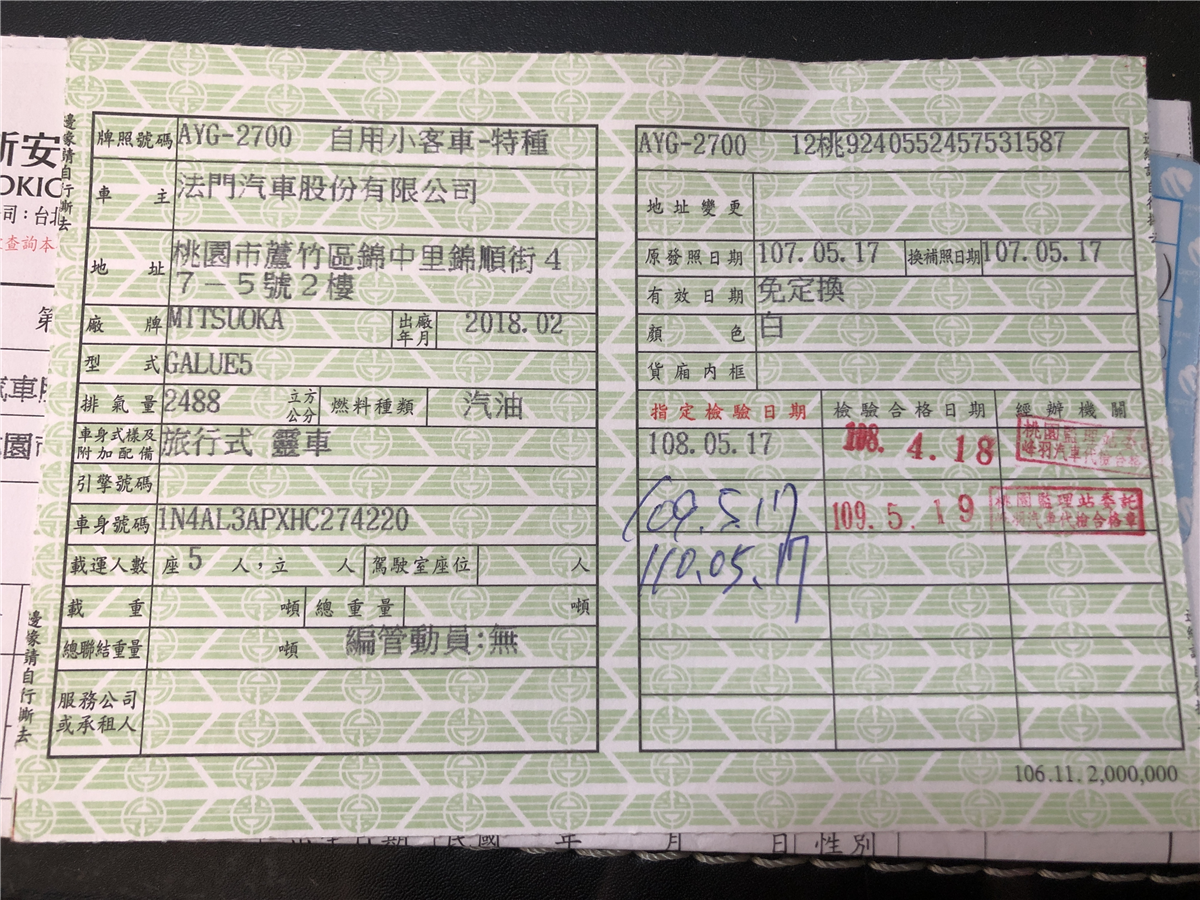 邊緣請自行撕去
牌照號碼 AYG-2700 自用小客車-特種
車主 法門汽車股份有限公司
地址 桃園市蘆竹區錦中里錦順街4
7－5號2樓
廠牌 MITSUOKA 出廠年月 2018.02
型式 GALUE5
排氣量 2488 立方公分 燃料種類 汽油
車身式樣及附加配備 旅行式 靈車
引擎號碼
車身號碼 1N4AL3APXHC274220
載運人數 座 5 人,立 人 駕駛室座位 人
載重 噸 總重量 噸
總聯結重量 噸 編管動員:無
服務公司或承租人
邊緣請自行撕去
AYG-2700 12桃9240552457531587
地址變更
原發照日期 107.05.17 換補照日期 107.05.17
有效日期 免定換
顏色 白
貨廂內框
指定檢驗日期 檢驗合格日期 經辦機關
108.05.17 108. 4.18
109.5.17 109.5.19 桃園監理站委託
汽車代檢合格章
110.05.17
106.11. 2,000,000
新安
OKIO
司：台北
查詢本
第
汽車
園市
年 月 日 性別